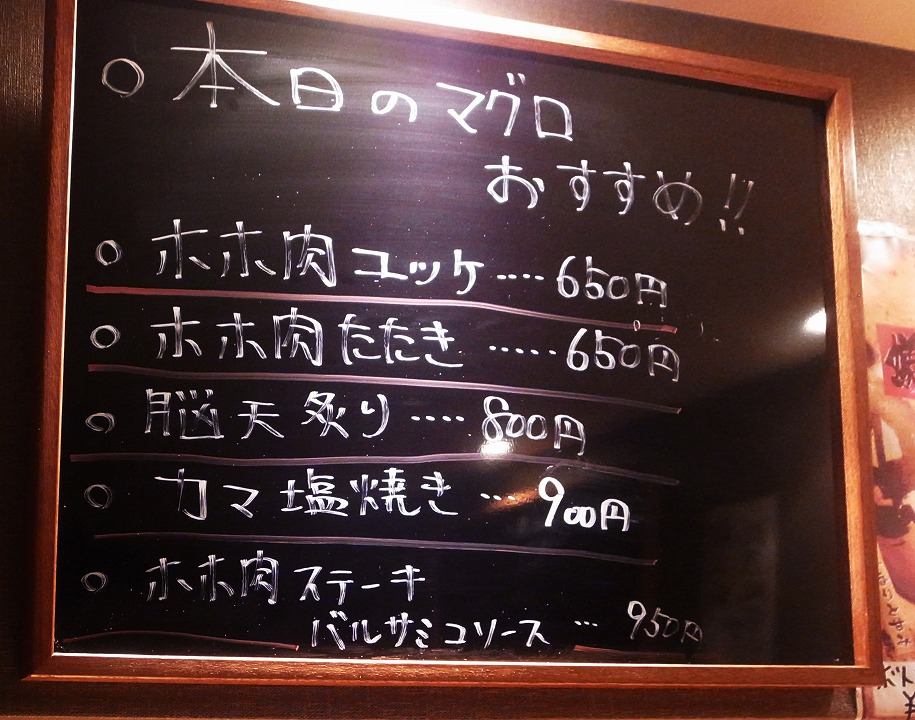 ○本日のマグロ
おすすめ!!
○ホホ肉ユッケ‥‥650円
○ホホ肉たたき‥‥‥650円
○脳天炙り‥‥800円
○カマ塩焼き…900円
○ホホ肉ステーキ
バルサミコソース…950円